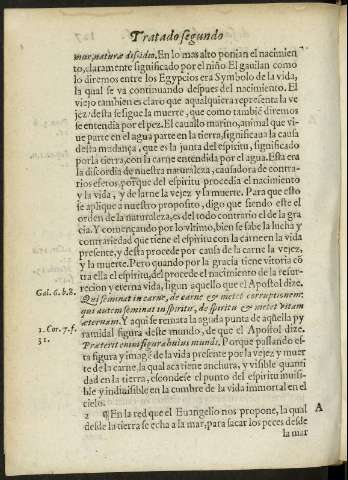 Tratado segundo
mur, naturæ discideo. En lo mas alto ponian el nacimien
to, claramente significado por el niño. El gauilan como
lo diremos entre los Egypcios era Symbolo de la vida,
la qual se va continuando despues del nacimiento. El
viejo tambien es claro que aqualquiera representa la ve
jez, desta se sigue la muerte, que como tambiē diremos
se entendia por el pez. El cauallo marino, animal que vi
ue parte en el agua parte en la tierra, significaua la causa
desta mudança, que es la junta del espiritu, significado
por la tierra, con la carne entendida por el agua. Esta era
la discordia de nuestra naturaleza, causadora de contra-
rios efetos, porque del espiritu procedia el nacimiento
y la vida, y de la rne le vejez y la muerte. Para que esto
se aplique a nuestro proposito, digo que siendo este el
orden de la naturaleza, es del todo contrario el de la gra
cia. Y començando por lo vltimo, bien se sabe la lucha y
contrariedad que tiene el espiritu con la carne en la vida
presente, y desta procede por causa de la carne la vejez,
y la muerte. Pero quando por la gracia tiene vitoria cō
tra ella el espiritu, del procede el nacimiento de la resur-
recion y eterna vida, sigun aquello que el Apostol dize.
Gal. 6. b. 8.
Qui seminat in carne, de carne & metet corruptionem:
qui autem seminat in spiritu, de spiritu & metet vitam
æternam. Y aqui se remata la aguda punta de aq̄lla py
1. Cor. 7. f.
31.
ramidal figura deste mundo, de que el Apostol dize.
Præterit enim figura huius mundi. Porque passando es-
ta figura y imagē de la vida presente por la vejez y muer
te de la carne, la qual aca tiene anchura, y visible quanti
dad en la tierra, escondese el punto del espiritu inuisi-
ble y indiuisible en la cumbre de la vida immortal en el
cielo.
2 ¶ En la red que el Euangelio nos propone, la qual
A
desde la tierra se echa a la mar, para sacar los peces desde
la mar